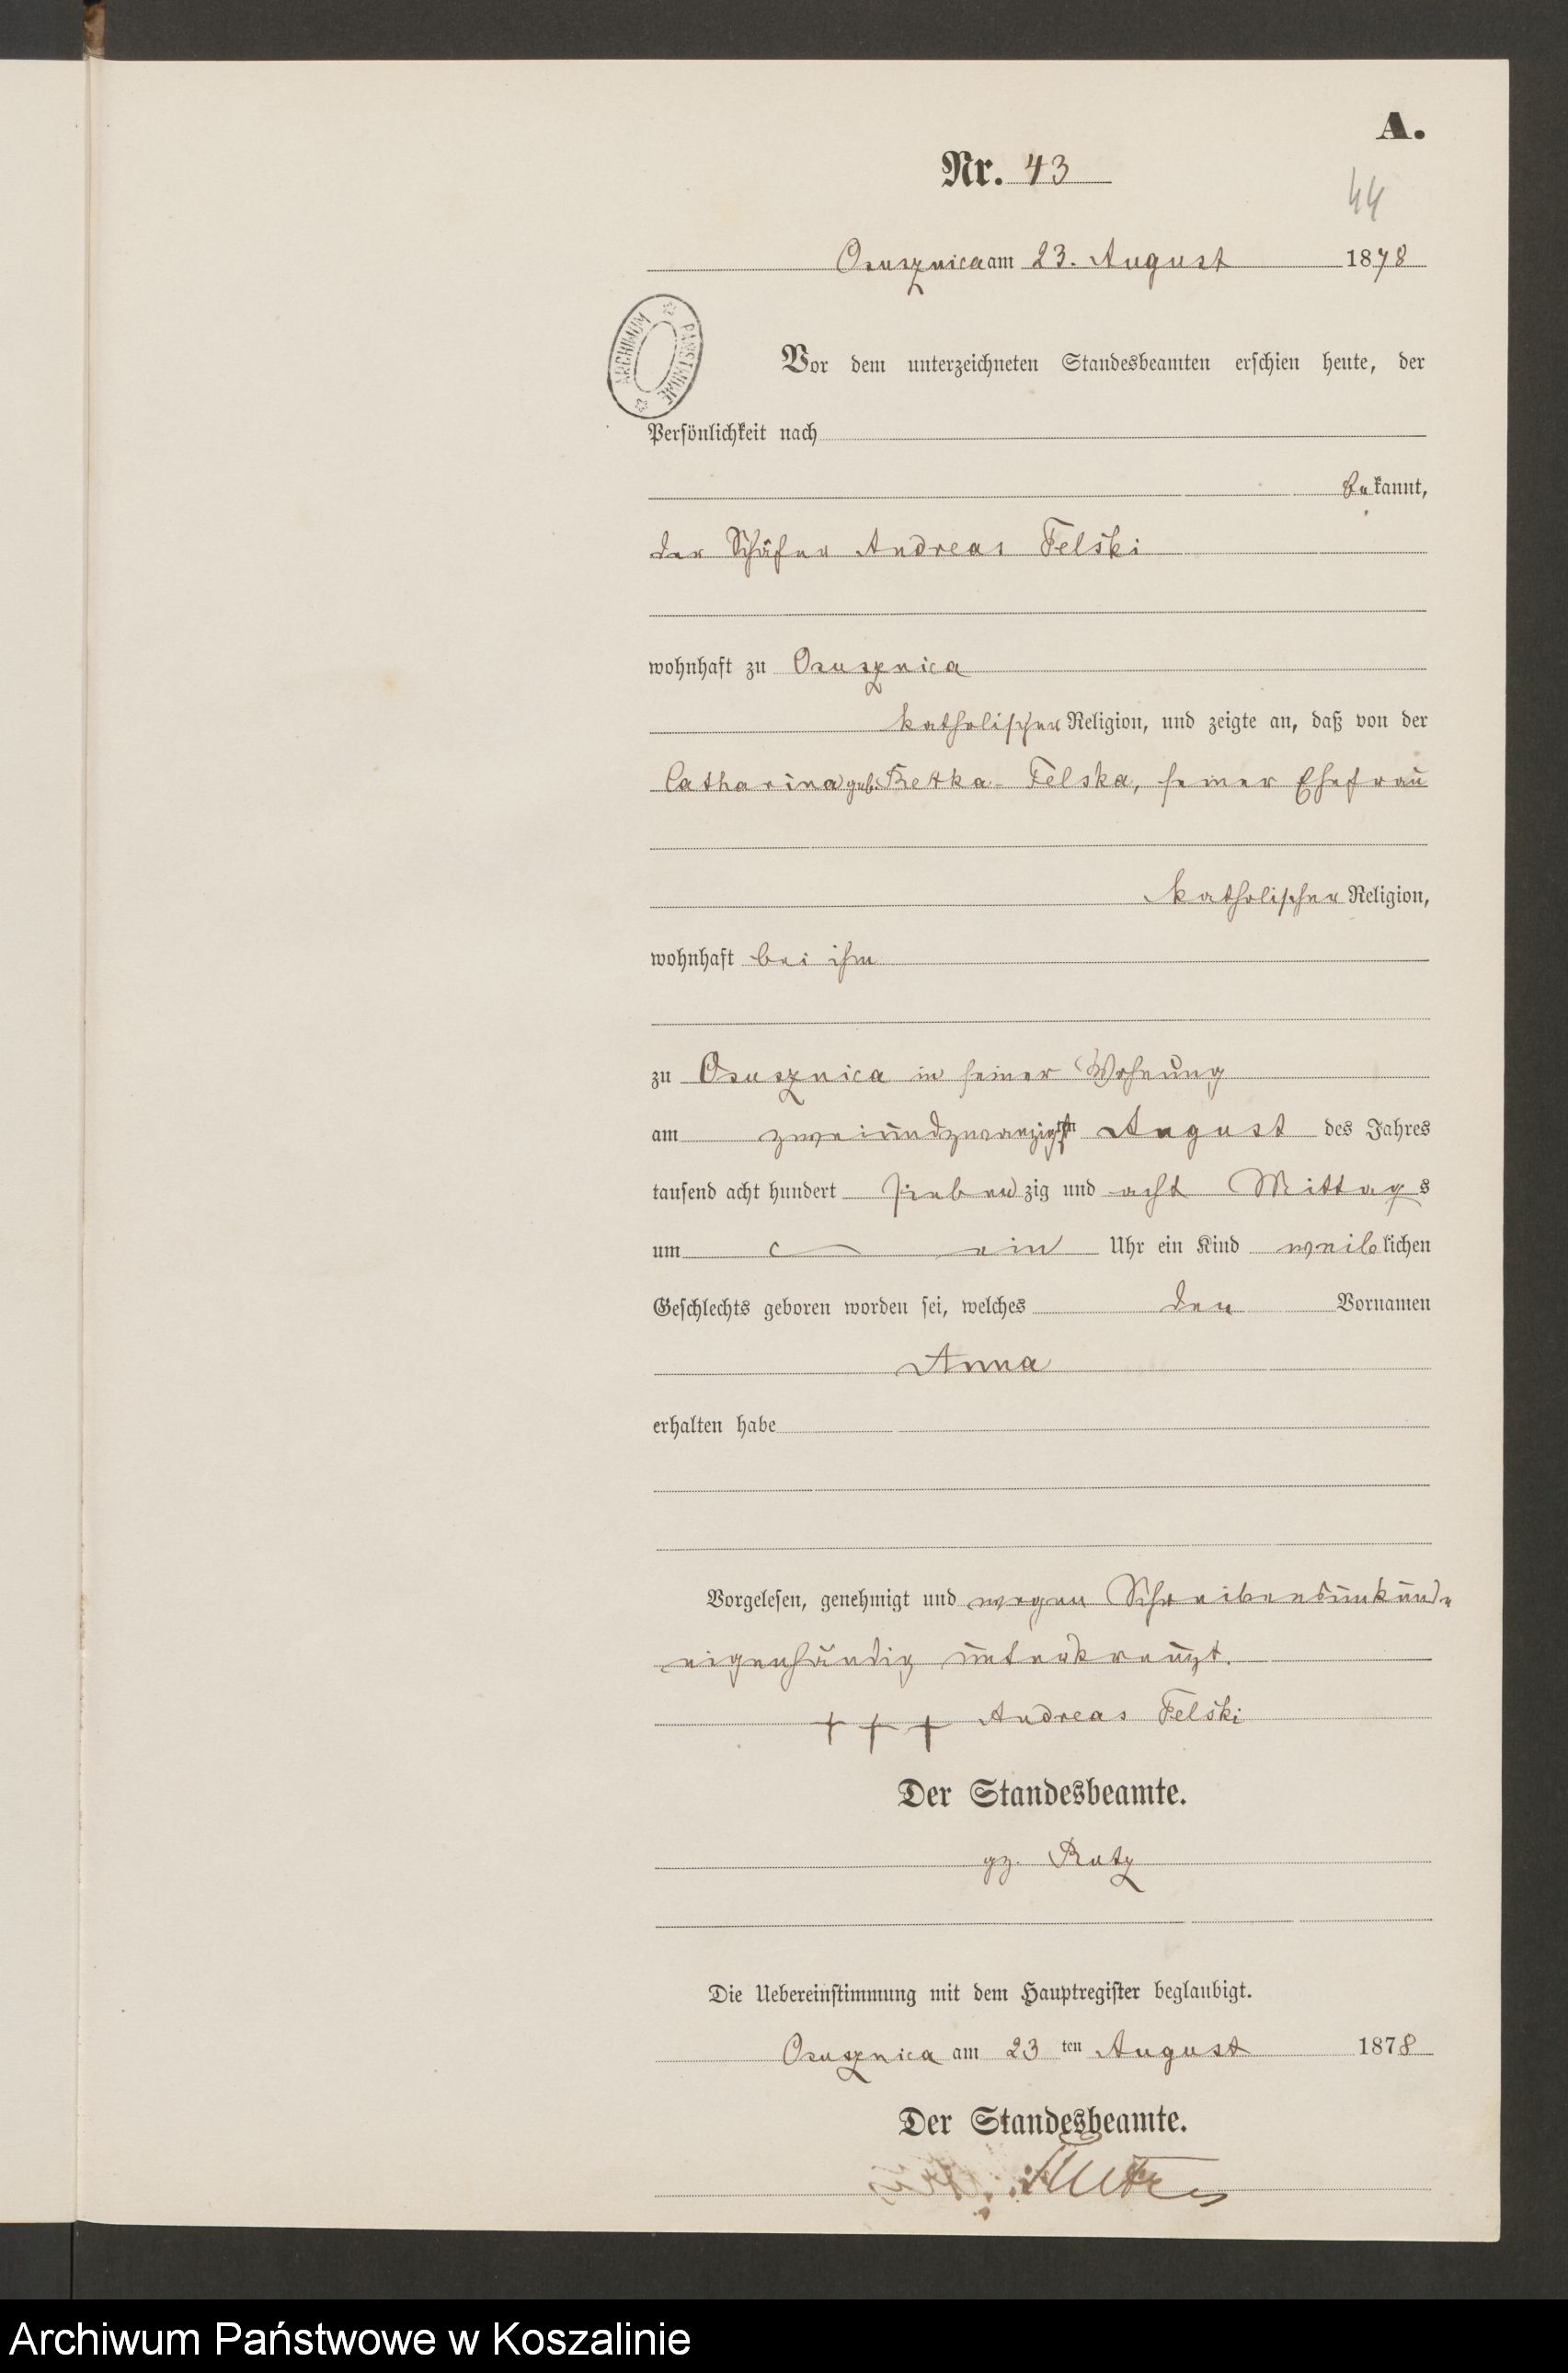 A.
Nr. 43
44
Osusznica am 23. August 1878
ARCHIWUM PAŃSTWOWE
Vor dem unterzeichneten Standesbeamten erschien heute, der
Persönlichkeit nach
bekannt,
der Schäfer Andreas Felski
wohnhaft zu Osusznica
katholischer Religion, und zeigte an, daß von der
Catharina geb. Retka Felska, seiner Ehefrau
katholischer Religion,
wohnhaft bei ihm
zu Osusznica in seiner Wohnung
am zweiundzwanzigsten August des Jahres
tausend acht hundert siebenzig und acht Mittags
um ein Uhr ein Kind weiblichen
Geschlechts geboren worden sei, welches den Vornamen
Anna
erhalten habe
Vorgelesen, genehmigt und wegen Schreibensunkunde
eigenhändig unterkreuzt.
+++ Andreas Felski
Der Standesbeamte.
gz. Rutz
Die Uebereinstimmung mit dem Hauptregister beglaubigt.
Osusznica am 23 ten August 1878
Der Standesbeamte.
Archiwum Państwowe w Koszalinie